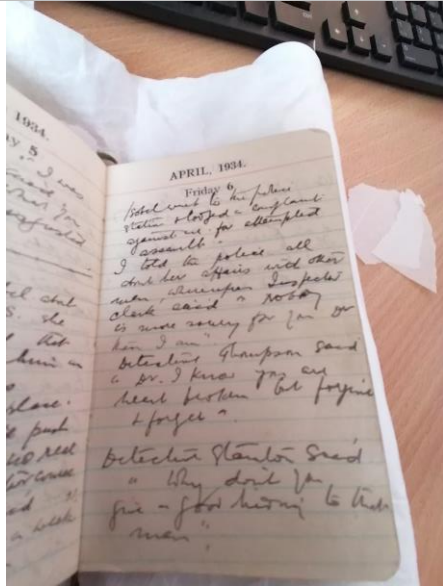 1934.
y 5
" I was
APRIL, 1934.
Friday 6.
Isobel went to the police
station & lodged a complaint
against me for attempted
assault.
I told the police all
about her affairs with other
men, whereupon Inspector
Clark said " Nobody
is more sorry for you Dr
than I am".
Detective Thompson said
" Dr. I know you are
heart broken but forgive
& forget ".
Detective Stanton said
" Why don't you
give a good hiding to that
man".
she
that
him in
place.
push
no real
and
a whole